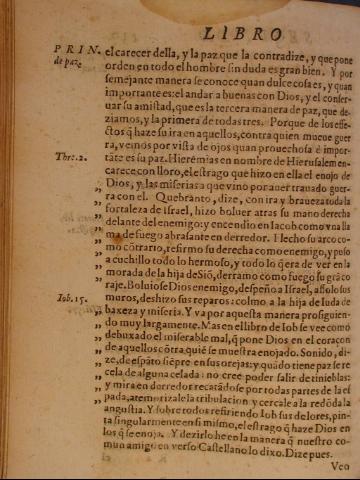 LIBRO
PRIN.
de paz.
el carecer della, y la paz que la contradize, y que pone
orden en todo el hombre sin duda es gran bien. Y por
semejante manera se conoce quan dulce cosa es, y quan
importante es: el andar a buenas con Dios, y el conser-
uar su amistad, que es la tercera manera de paz, que de-
ziamos, y la primera de todas tres. Porque de los effe-
ctos q̃ haze su ira en aquellos, contra quien mueue gue-
rra, veinos por vista de ojos quan prouechosa è impor-
Thre. 2.
tãte es su paz. Hieremias en nombre de Hierusalem en-
carece con lloro, el estrago que hizo en ella el enojo de
„ Dios, y las miserias a que vino por auer trauado gue-
rra con el. Quebranto, dize, con ira y braueza toda la
„ fortaleza de Israel, hizo boluer atras su mano derecha
„ delante del enemigo: y encendio en Iacob como vna lla
„ ma de fuego abrasante en derredor. Flecho su arco co-
„ mo cõtrario, refirmo su derecha como enemigo, y puso
„ a cuchillo todo lo hermoso, y todo lo q̃ era de ver en la
„ morada de la hija de Siõ, derramo como fuego su grã co
„ raje. Boluiose Dios enemigo, despeño a Israel, assolo sus
Iob. 15.
„ muros, deshizo sus reparos: colmo a la hija de Iuda de
„ baxeza y miseria. Y va por aquesta manera prosiguien-
do muy largamente. Mas en el libro de Iob se vee como
„ debuxado el miserable mal, q̃ pone Dios en el coraçon
„ de aquellos cõtra quiẽ se muestra enojado. Sonido, di-
„ ze, de espãto siẽpre en sus orejas: y quãdo tiene paz se re
„ cela de alguna celada: no cree poder salir de tinieblas:
„ y mira en derredor recatãdose por todas partes de la es
„ pada, atemorizale la tribulacion y cercale a la redõda la
angustia. Y sobre todos refiriendo Iob sus dolores, pin-
ta singularmente en si mismo, el estrago q̃ haze Dios en
los q̃ se enoja. Y dezirlo he en la manera q̃ nuestro co-
mun amigo en verso Castellano lo dixo. Dize pues.
Veo